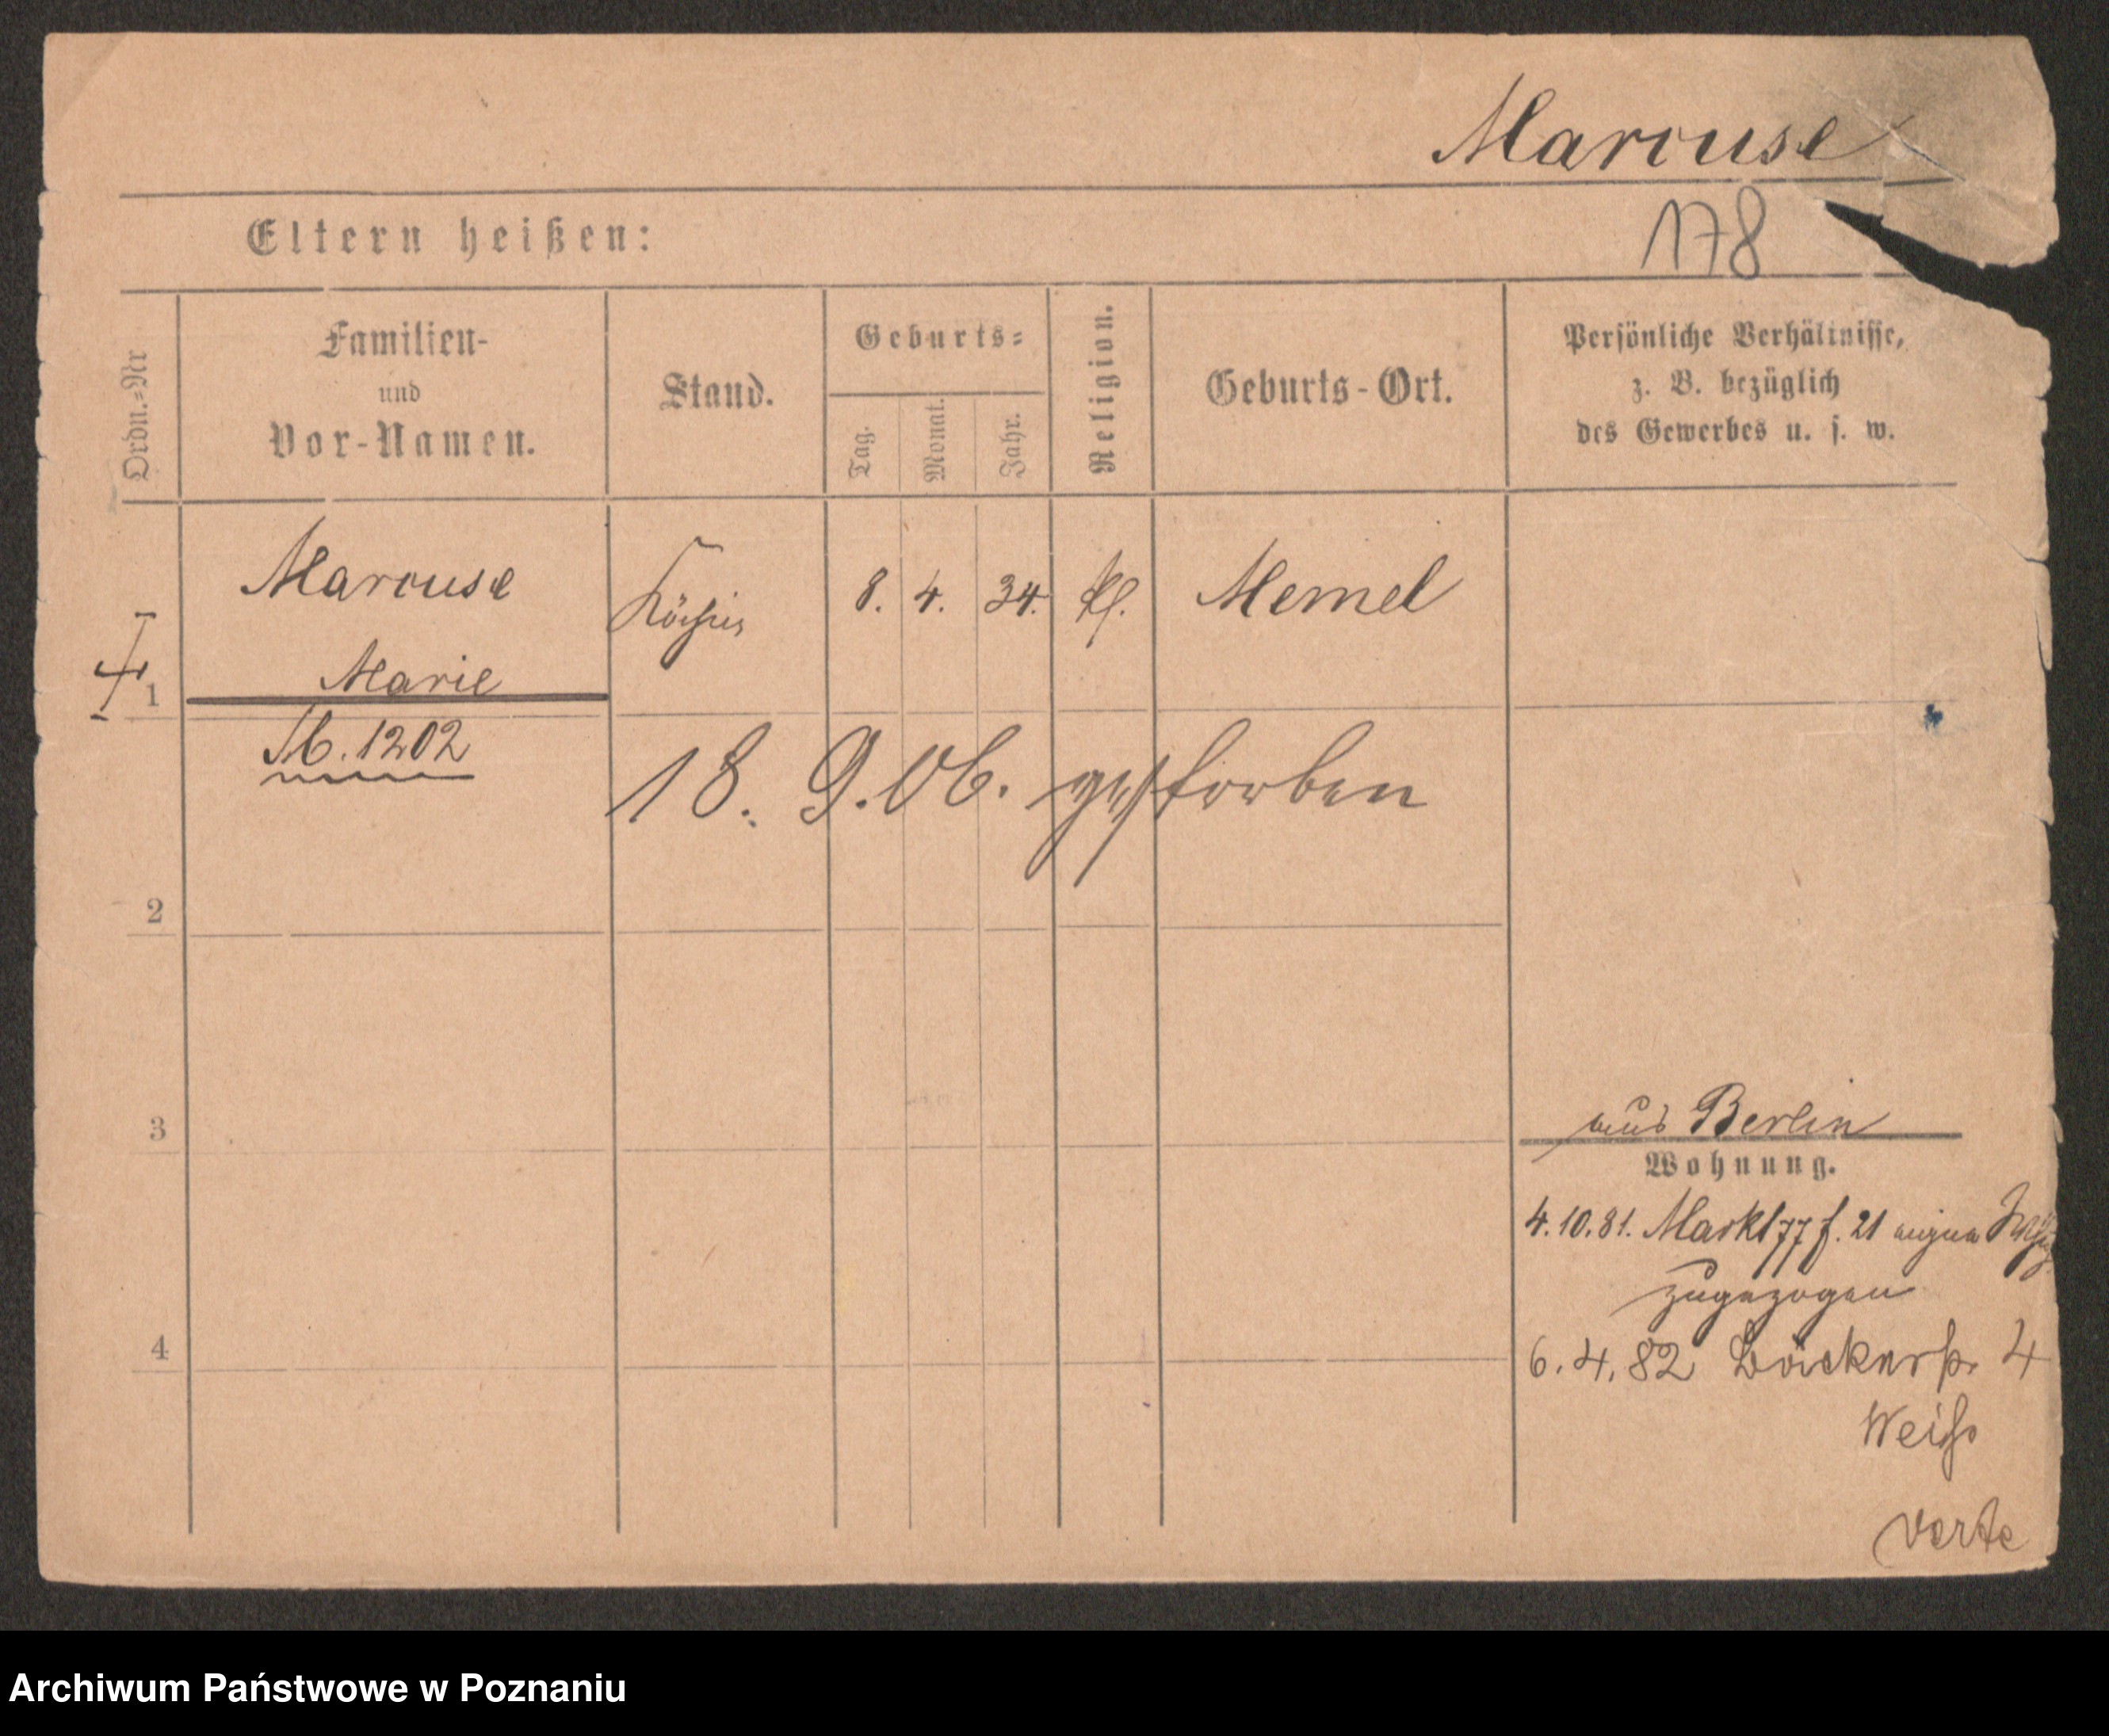 Marcuse
178
Eltern heißen:
Ordn.-Nr
Familien-
und
Vor-Namen.
Stand.
Geburts-
Tag.
Monat.
Jahr.
Religion.
Geburts-Ort.
Persönliche Verhältnisse,
z. B. bezüglich
des Gewerbes u. s. w.
Marcuse
Marie
Köchin
8. 4. 34.
Memel
1
1202
18. 9. 06. gestorben
2
3
aus Berlin
Wohnung.
4.10.81. Markt 77 f. 21 eigene
zugezogen
4
6. 4. 82 Bäckerstr. 4
Weiß
verte
Archiwum Państwowe w Poznaniu